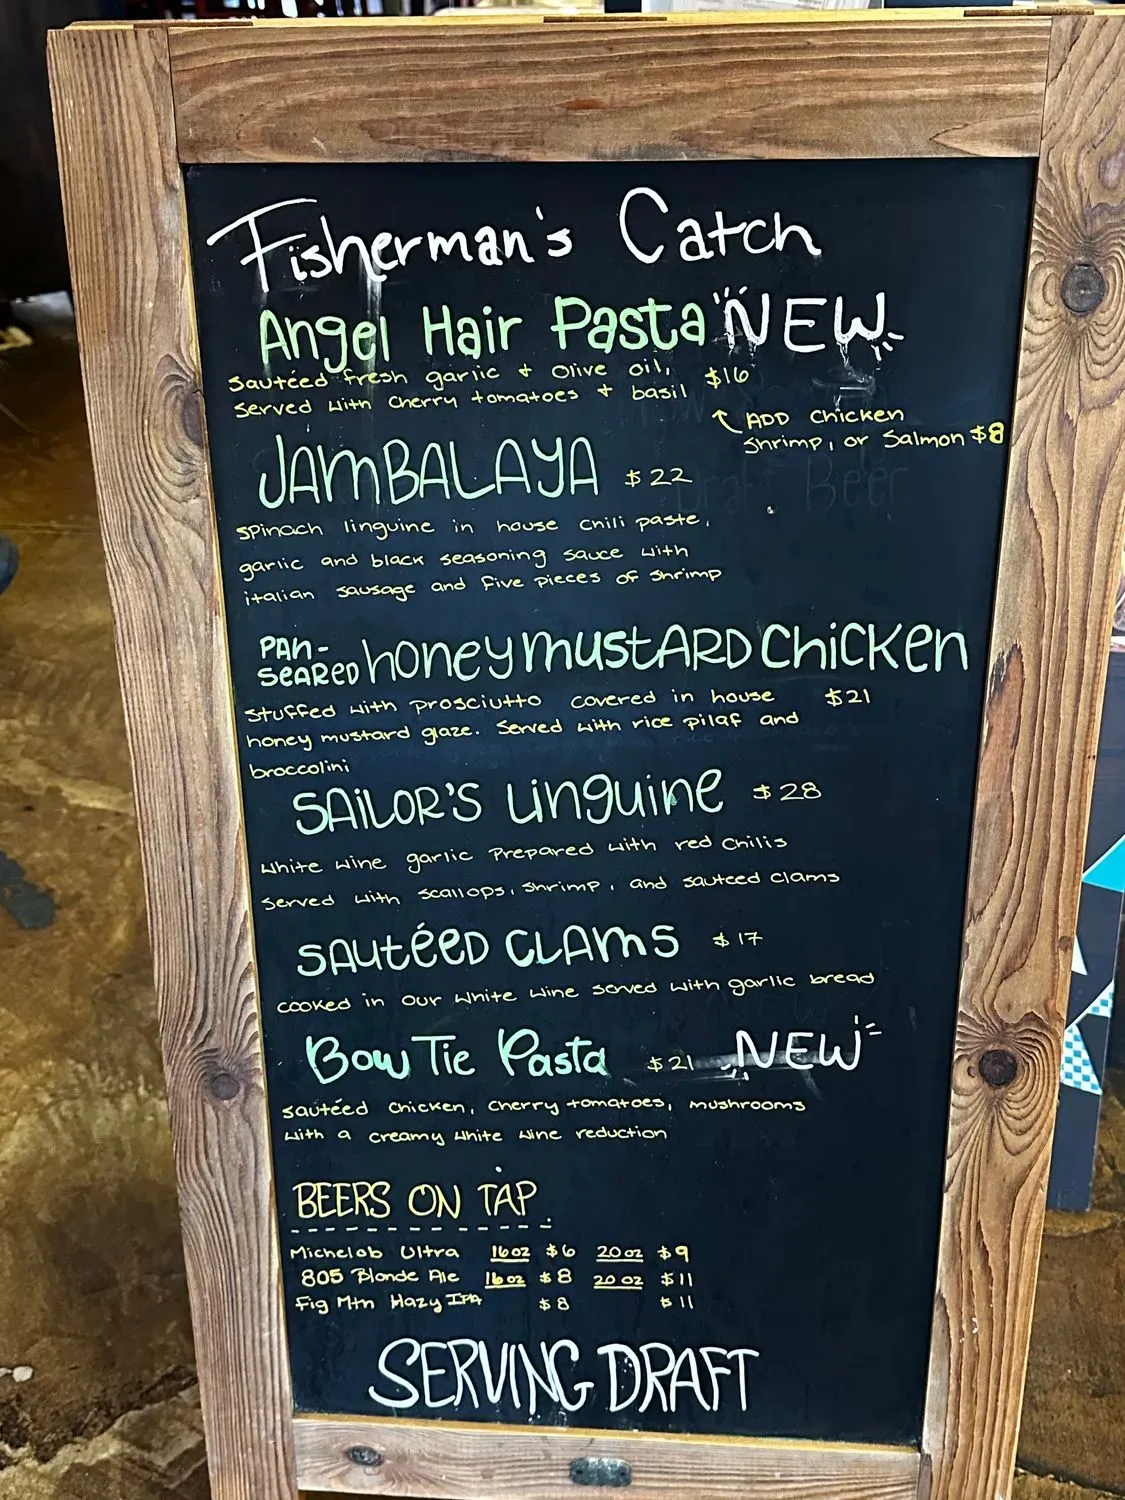 Fisherman's Catch
Angel Hair Pasta NEW
Sautéed fresh garlic & Olive oil, $16
Served with Cherry tomatoes & basil
ADD Chicken
Shrimp, or Salmon $8
JAMBALAYA $22
Spinach linguine in house chili paste,
garlic and black seasoning sauce with
italian sausage and five pieces of shrimp
PAN-SEARED honey mustARD Chicken
Stuffed with prosciutto covered in house $21
honey mustard glaze. Served with rice pilaf and
broccolini
SAiLOR'S Linguine $28
White wine garlic Prepared with red chilis
Served with scallops, shrimp, and sauteed clams
SAutéED CLAMS $17
cooked in our white wine served with garlic bread
Bow Tie Pasta $21 NEW
Sautéed Chicken, Cherry tomatoes, mushrooms
with a creamy white wine reduction
BEERS ON TAP
Michelob Ultra 16oz $6 20oz $9
805 Blonde Ale 16oz $8 20oz $11
Fig Mtn Hazy IPA $8 $11
SERVING DRAFT